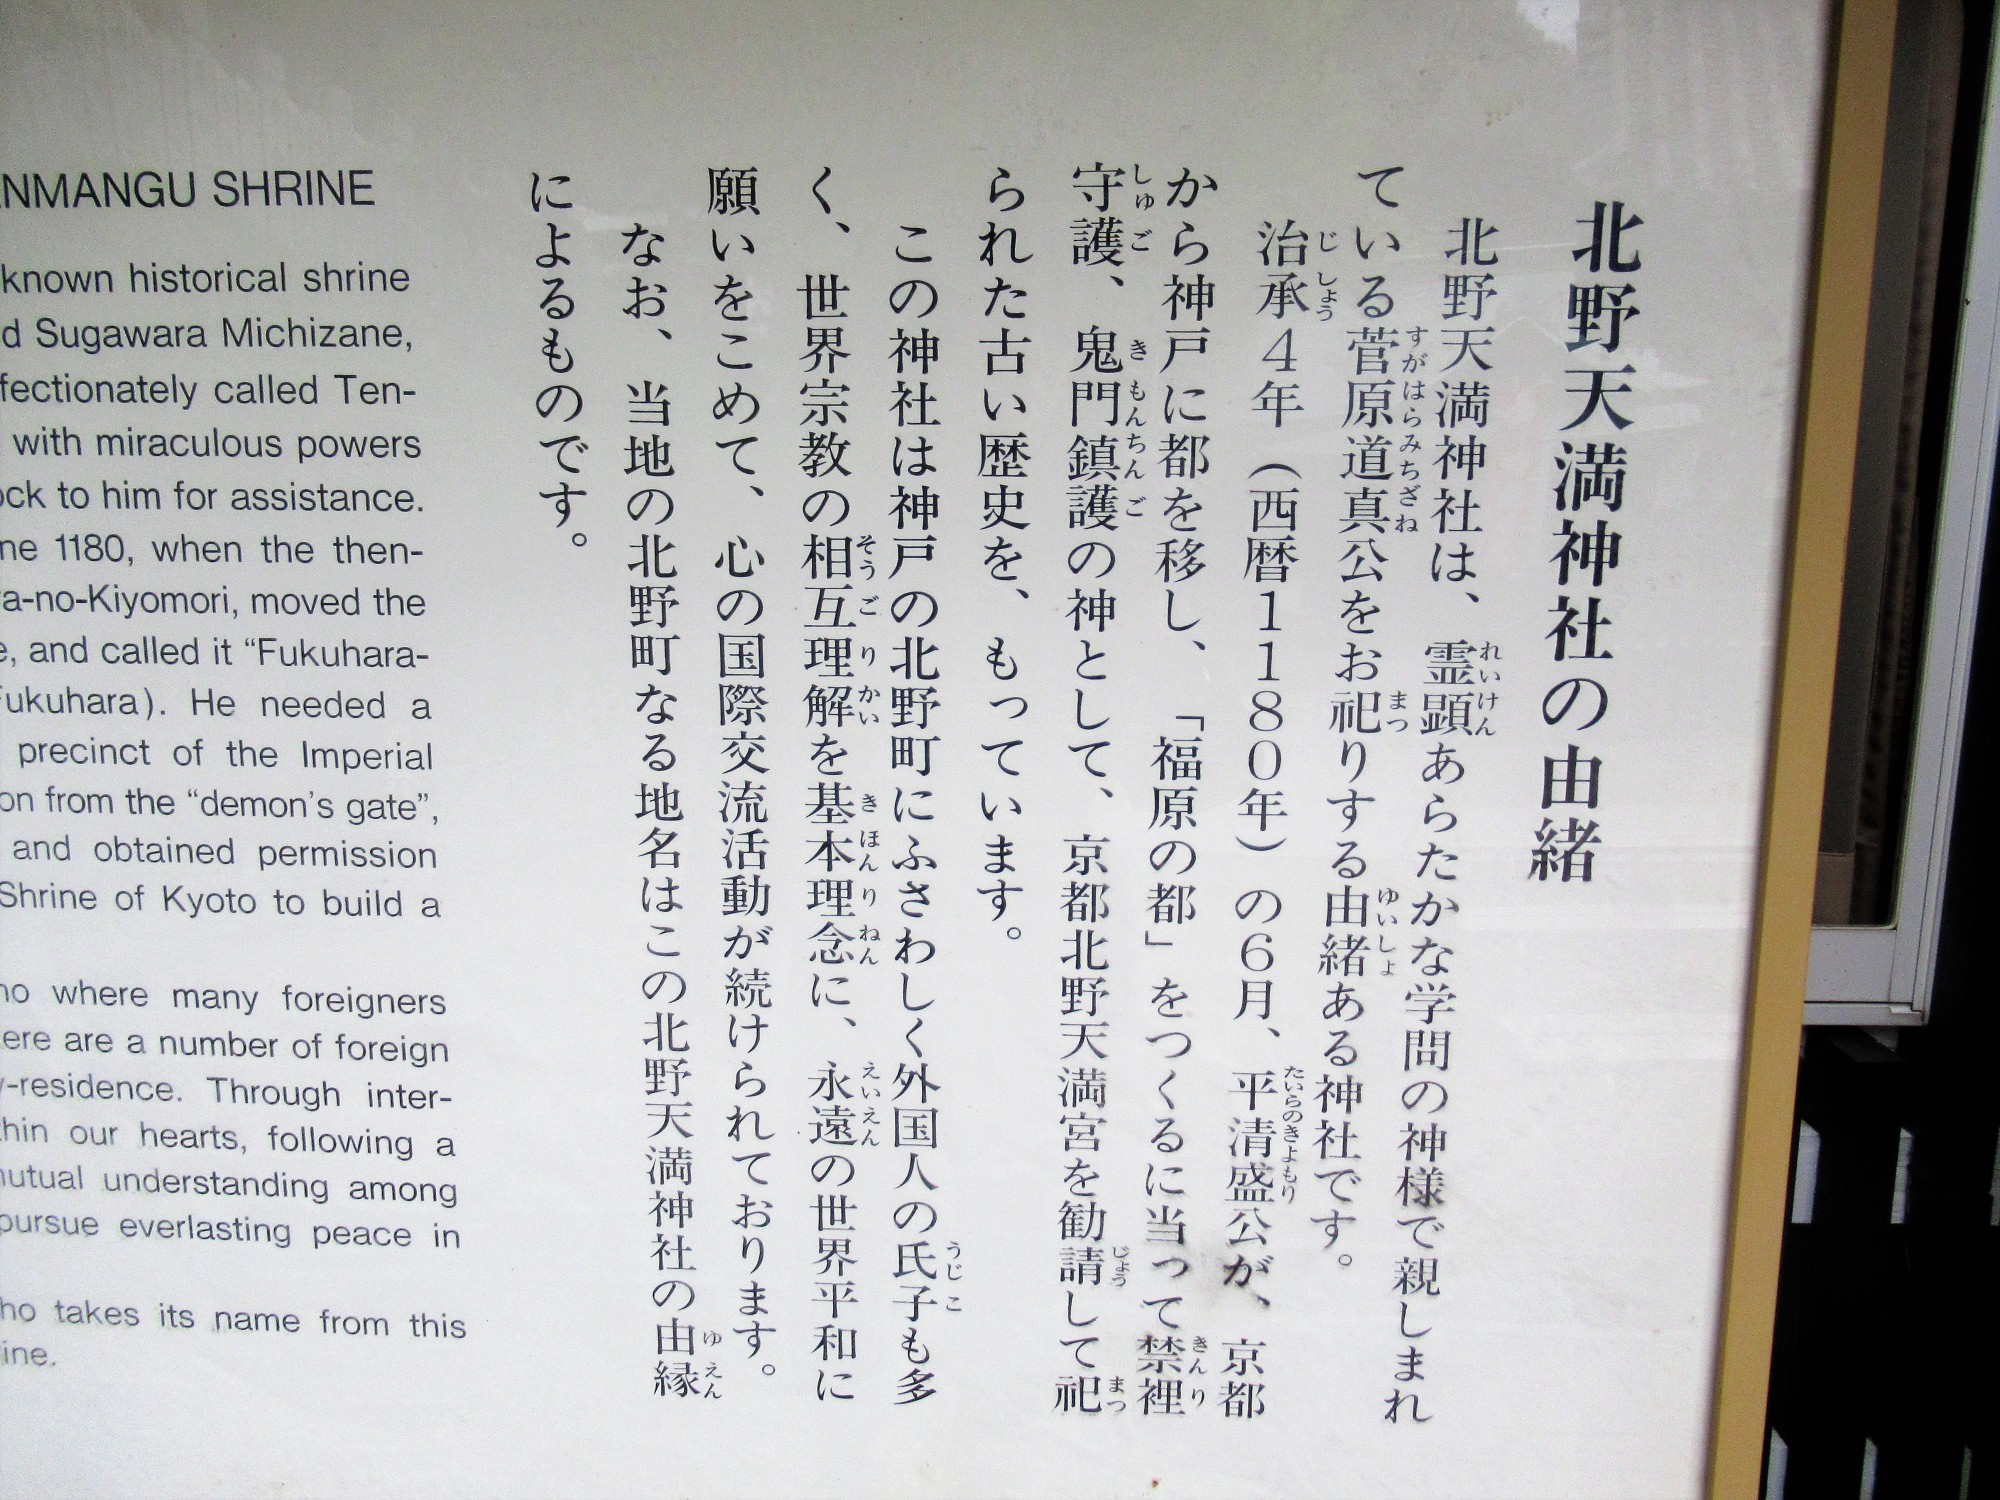 北野天満神社の由緒
北野天満神社は、霊顕あらたかな学問の神様で親しまれ
ている菅原道真公をお祀りする由緒ある神社です。
治承4年（西暦1180年）の6月、平清盛公が、京都
から神戸に都を移し、「福原の都」をつくるに当って禁裡
守護、鬼門鎮護の神として、京都北野天満宮を勧請して祀
られた古い歴史を、もっています。
この神社は神戸の北野町にふさわしく外国人の氏子も多
く、世界宗教の相互理解を基本理念に、永遠の世界平和に
願いをこめて、心の国際交流活動が続けられております。
なお、当地の北野町なる地名はこの北野天満神社の由縁
によるものです。
ENMANGU SHRINE
known historical shrine
d Sugawara Michizane,
fectionately called Ten-
with miraculous powers
ock to him for assistance.
ne 1180, when the then-
ra-no-Kiyomori, moved the
e, and called it “Fukuhara-
Fukuhara). He needed a
precinct of the Imperial
on from the “demon's gate”,
and obtained permission
Shrine of Kyoto to build a
no where many foreigners
ere are a number of foreign
y-residence. Through inter-
thin our hearts, following a
mutual understanding among
pursue everlasting peace in
ho takes its name from this
ine.